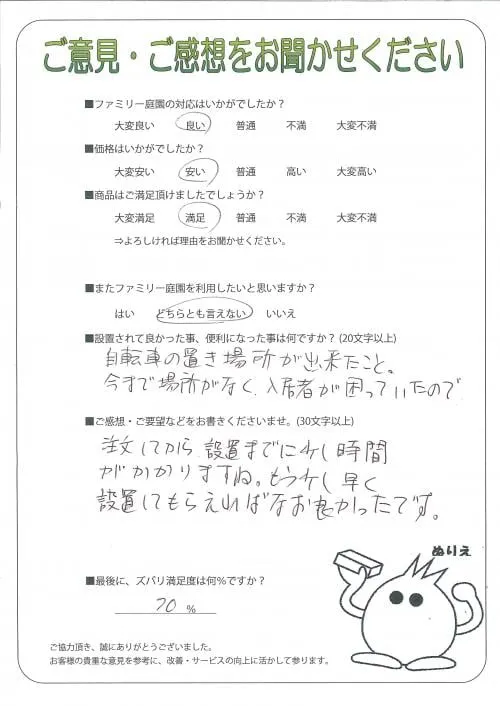 ご意見・ご感想をお聞かせください
■ファミリー庭園の対応はいかがでしたか？
大変良い 良い 普通 不満 大変不満
■価格はいかがでしたか？
大変安い 安い 普通 高い 大変高い
■商品はご満足頂けましたでしょうか？
大変満足 満足 普通 不満 大変不満
⇒よろしければ理由をお聞かせください。
■またファミリー庭園を利用したいと思いますか？
はい どちらとも言えない いいえ
■設置されて良かった事、便利になった事は何ですか？(20文字以上)
自転車の置き場所が出来たこと。
今まで場所がなく、入居者が困っていたので
■ご感想・ご要望などをお書きくださいませ。(30文字以上)
注文してから、設置までに少し時間
がかかりますね。もう少し早く
設置してもらえればなお良かったです。
ぬりえ
■最後に、ズバリ満足度は何％ですか？
70 %
ご協力頂き、誠にありがとうございました。
お客様の貴重な意見を参考に、改善・サービスの向上に活かして参ります。